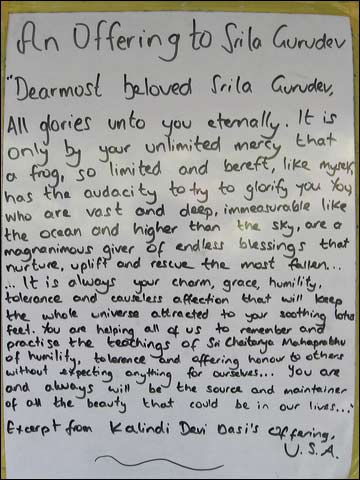 An Offering to Srila Gurudev
"Dearmost beloved Srila Gurudev,
All glories unto you eternally. It is
only by your unlimited mercy that
a frog, so limited and bereft, like myself,
has the audacity to try to glorify you. You,
who are vast and deep, immeasurable like
the ocean and higher than the sky, are a
magnanimous giver of endless blessings that
nurture, uplift and rescue the most fallen...
... It is always your charm, grace, humility,
tolerance and causeless affection that will keep
the whole universe attracted to your soothing lotus
feet. You are helping all of us to remember and
practise the teachings of Sri Chaitanya Mahaprabhu
of humility, tolerence and offering honour to others
without expecting anything for ourselves... You are
and always will be the source and maintainer
of all the beauty that could be in our lives..."
Excerpt from Kalindi Devi Dasi's Offering,
U.S.A.